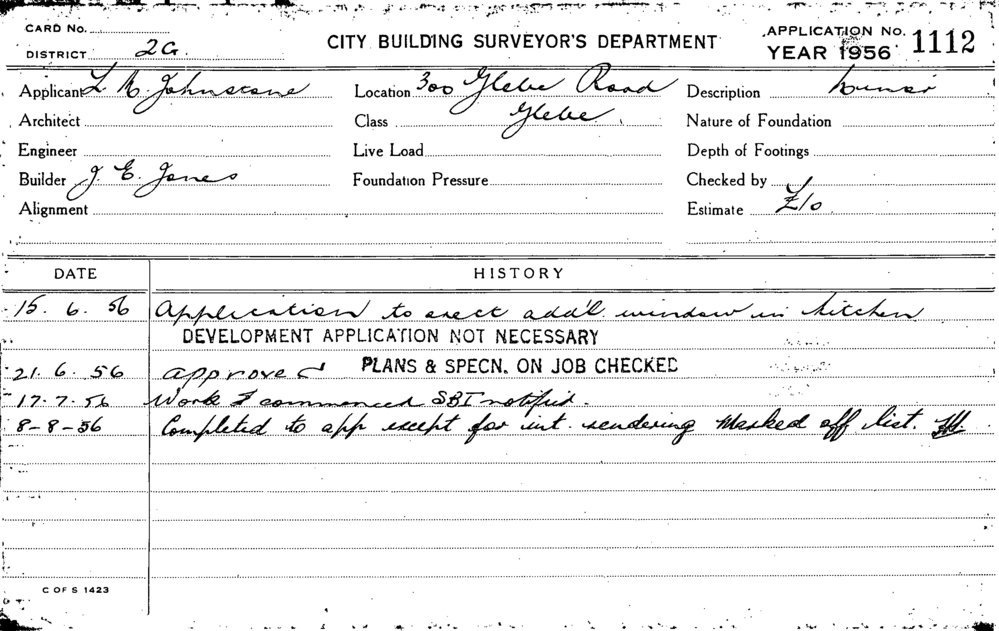 CARD No.
DISTRICT 2G.
CITY BUILDING SURVEYOR'S DEPARTMENT
APPLICATION No. 1112
YEAR 1956
Applicant L Johnstone
Location 300 Glebe Road
Description Minor
Architect
Class Glebe.
Nature of Foundation
Engineer
Live Load
Depth of Footings
Builder J. E. Jones
Foundation Pressure
Checked by
Alignment
Estimate £10
DATE HISTORY
15. 6. 56 Application to erect add'l window in kitchen
DEVELOPMENT APPLICATION NOT NECESSARY
21. 6. 56 approved PLANS & SPECN. ON JOB CHECKED
17-7-56 Work commenced SBI notified.
8-8-56 Completed to app except for int. rendering Marked off list.
C OF S 1423